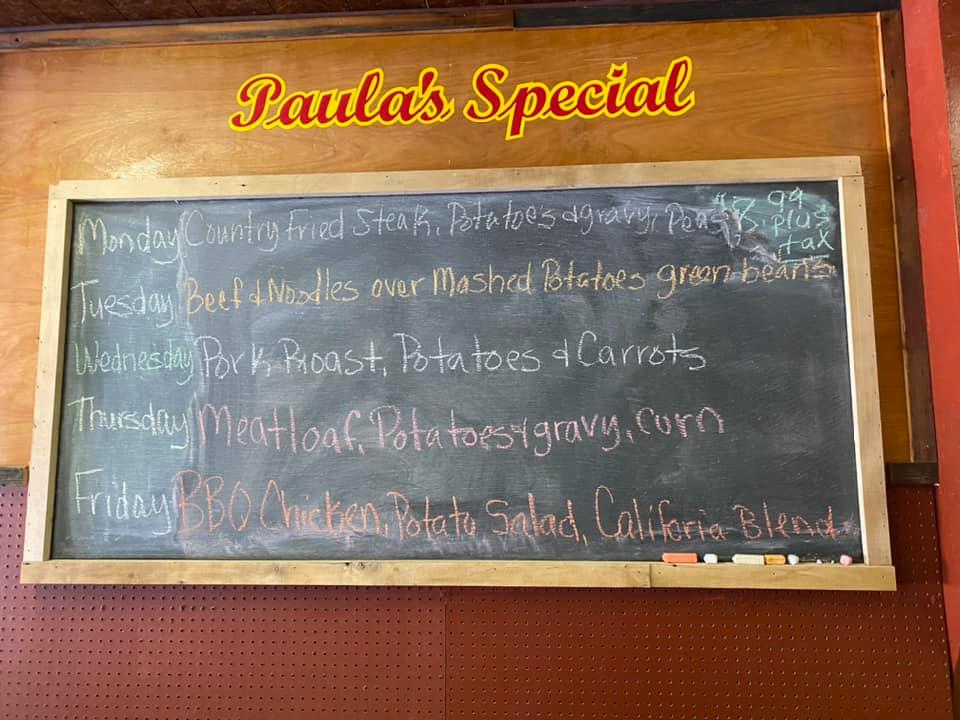 Paula's Special
Monday Country Fried Steak, Potatoes & gravy, Peas $8.99 plus tax
Tuesday Beef & Noodles over Mashed Potatoes green beans
Wednesday Pork Roast, Potatoes & Carrots
Thursday Meatloaf, Potatoes & gravy, corn
Friday BBQ Chicken, Potato Salad, Califoria Blend